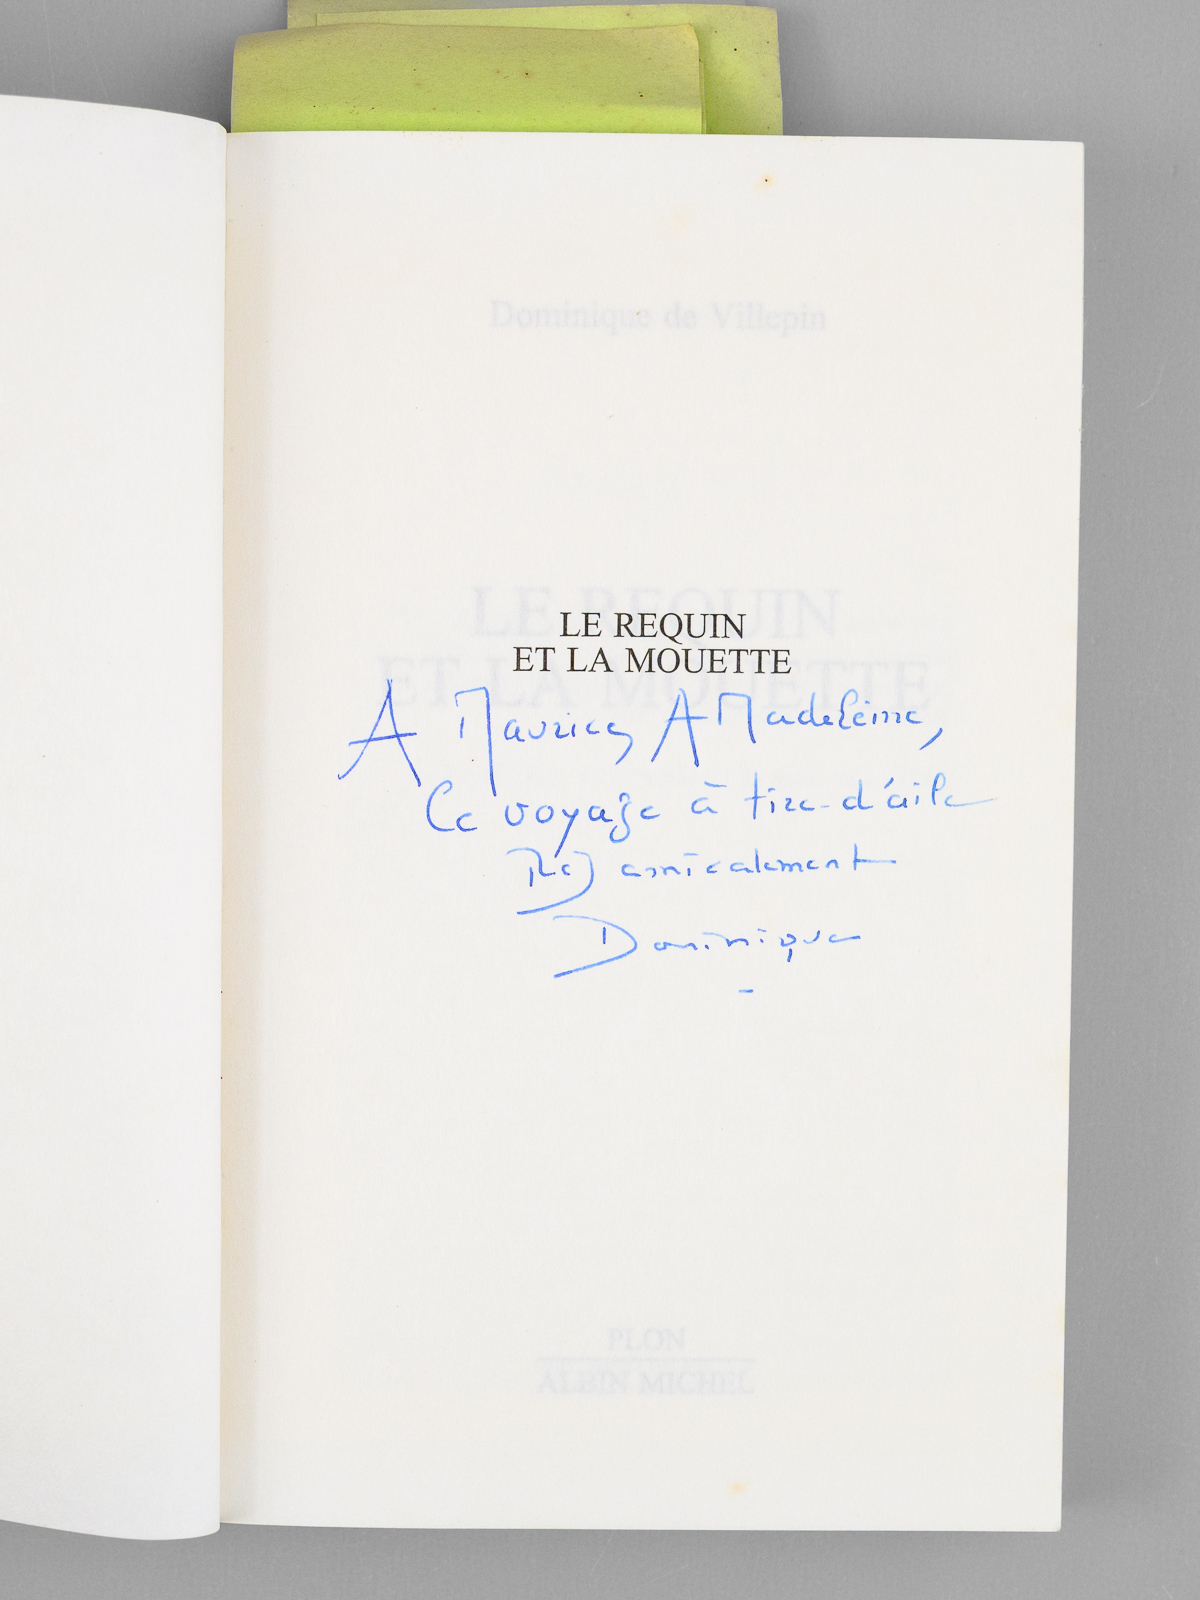 Dominique de Villepin
LE REQUIN
ET LA MOUETTE
LE REQUIN
ET LA MOUETTE
A Maurice, A Madeleine,
Ce voyage à tire-d'aile
Très amicalement
Dominique
PLON
ALBIN MICHEL